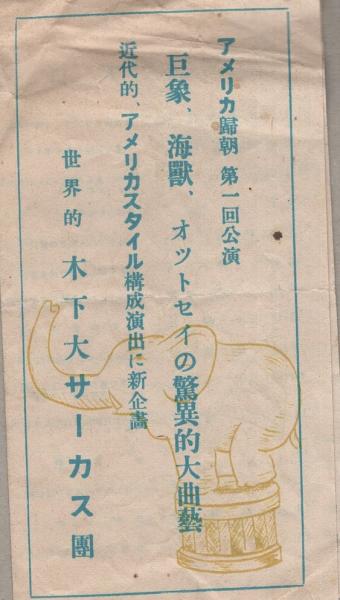 アメリカ歸朝 第一回公演
巨象、海獸、オツトセイの驚異的大曲藝
近代的、アメリカスタイル構成演出に新企畵
世界的 木下大サーカス團